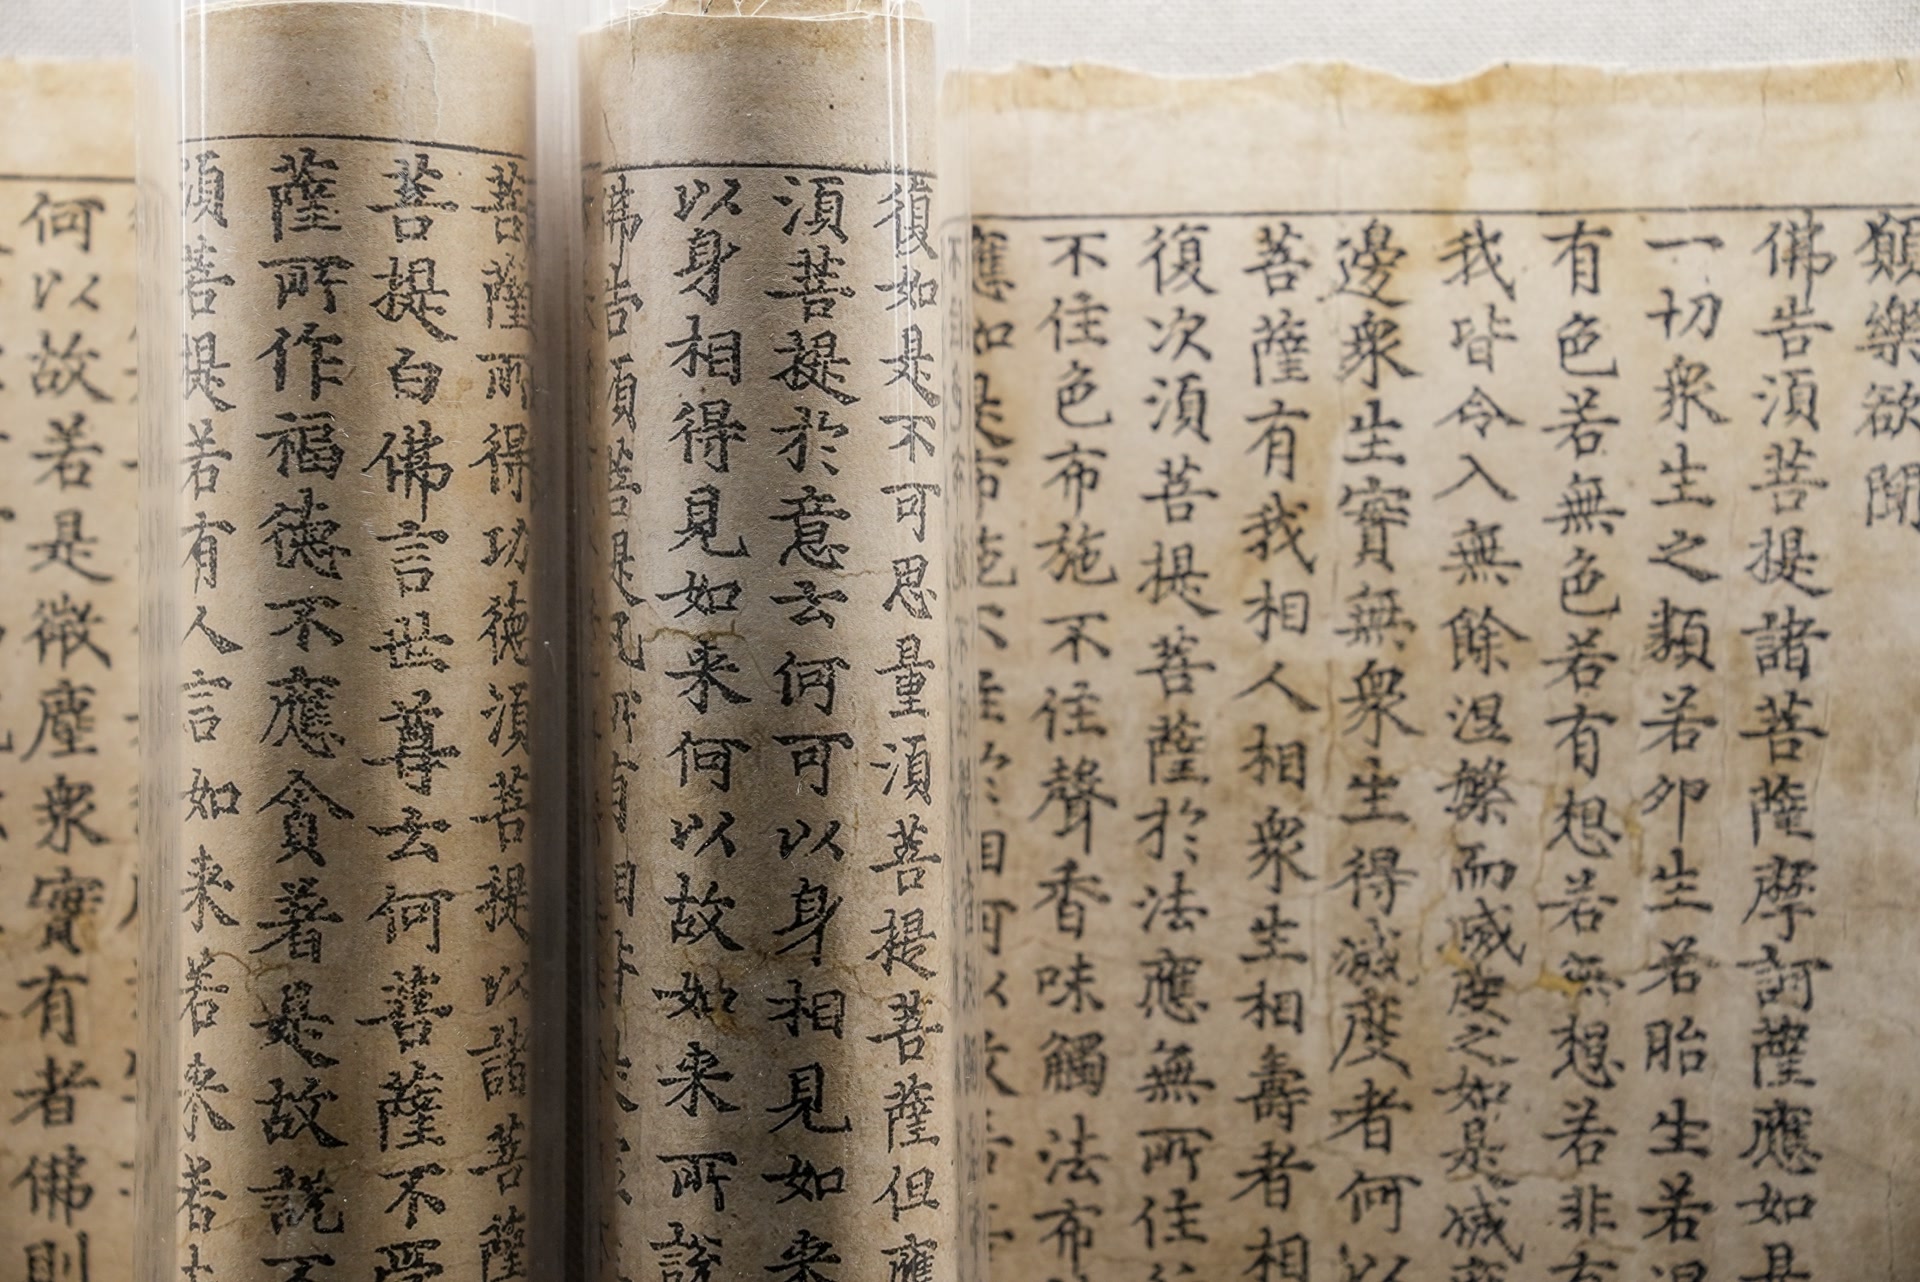 願樂欲聞
佛告湏菩提諸菩薩摩訶薩應如是
一切衆生之類若卵生若胎生若濕
有色若無色若有想若無想若非有
我皆令入無餘涅槃而滅度之如是滅度
邊衆生實無衆生得滅度者何以
菩薩有我相人相衆生相壽者相
復次湏菩提菩薩於法應無所住
不住色布施不住聲香味觸法布
應如是布施不住於相何以故
復如是不可思量湏菩提菩薩但應
湏菩提於意云何可以身相見如来
以身相得見如来何以故如来所說
佛告湏菩提凡所有相
菩薩所得功德湏菩提以諸菩薩
菩提白佛言世尊云何菩薩不受
薩所作福德不應貪著是故說不
湏菩提若有人言如来若来若去
何以故若是微塵衆實有者佛則